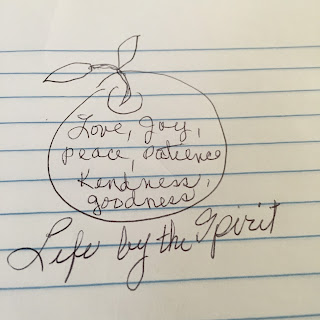 Love, Joy,
peace, patience
Kendness,
goodness
Life by the Spirit